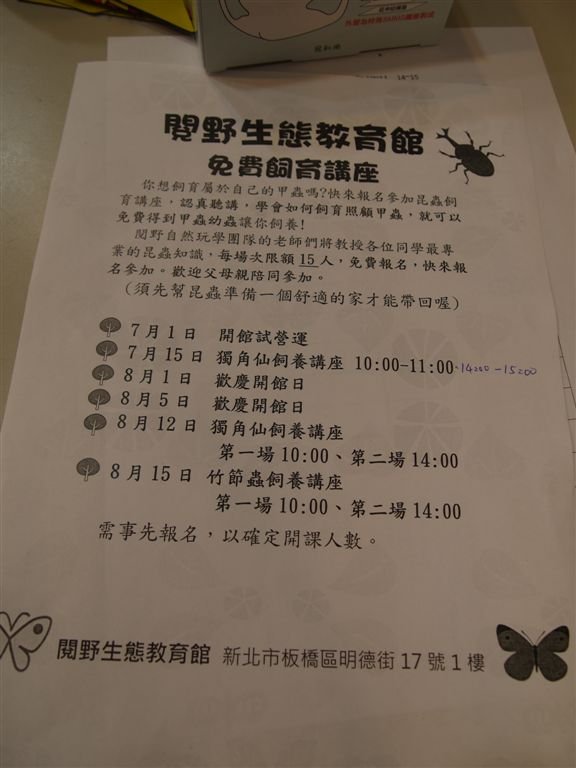 龍和樂
14-15
閱野生態教育館
免費飼育講座
你想飼育屬於自己的甲蟲嗎?快來報名參加昆蟲飼
育講座,認真聽講,學會如何飼育照顧甲蟲,就可以
免費得到甲蟲幼蟲讓你飼養!
閱野自然玩學團隊的老師們將教授各位同學最專
業的昆蟲知識,每場次限額15人,免費報名,快來報
名參加。歡迎父母親陪同參加。
(須先幫昆蟲準備一個舒適的家才能帶回喔)
7月1日 開館試營運
7月15日 獨角仙飼養講座 10:00-11:00、14:00-15:00
8月1日 歡慶開館日
8月5日 歡慶開館日
8月12日 獨角仙飼養講座
第一場10:00、第二場14:00
8月15日 竹節蟲飼養講座
第一場10:00、第二場14:00
需事先報名,以確定開課人數。
閱野生態教育館 新北市板橋區明德街17號1樓